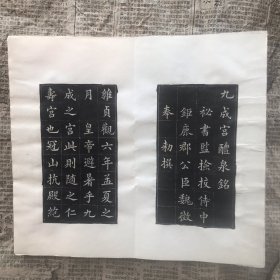 九成宫醴泉銘
秘書監檢挍侍中
鉅鹿郡公臣魏徵
奉 勑撰
維貞觀六年孟夏之
月 皇帝避暑乎九
成之宫此則随之仁
壽宫也冠山抗殿絶